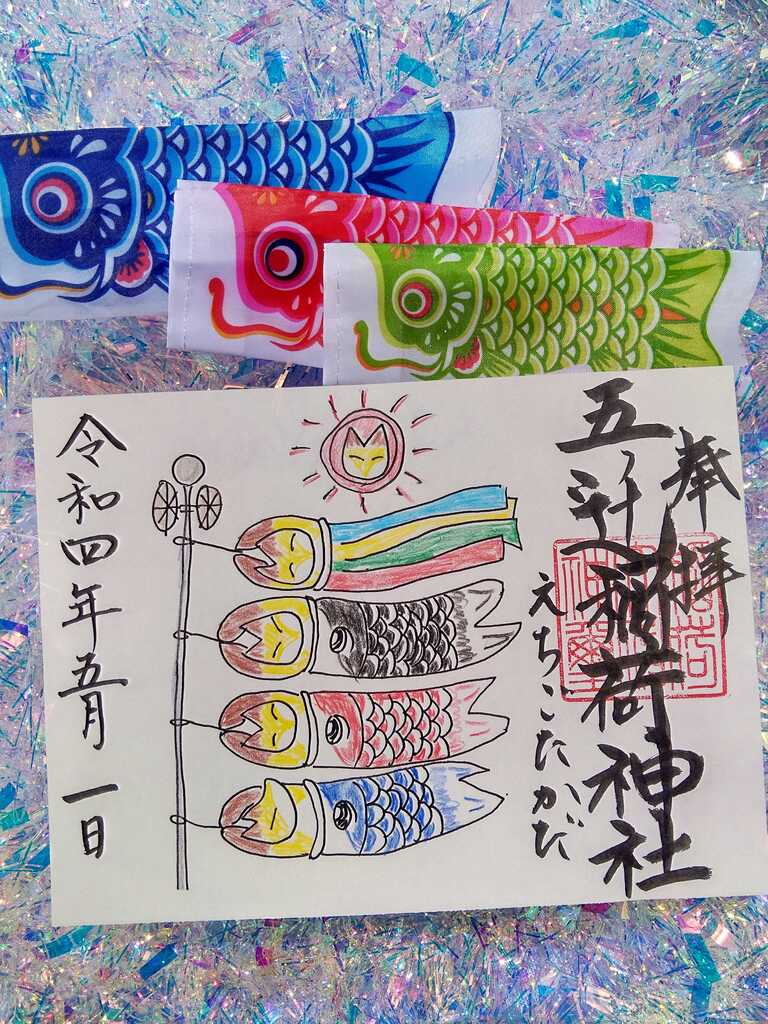 奉拝
五ノ辻稲荷神社
えちごたかだ
令和四年五月一日